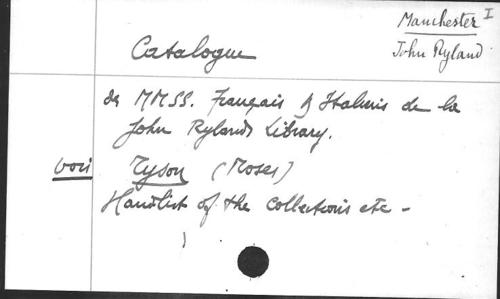 Manchester I
John Ryland
Catalogue
de MMSS. français & Italiens de la
John Rylands Library.
voir Tyson (Moses)
Handlist of the collections etc -